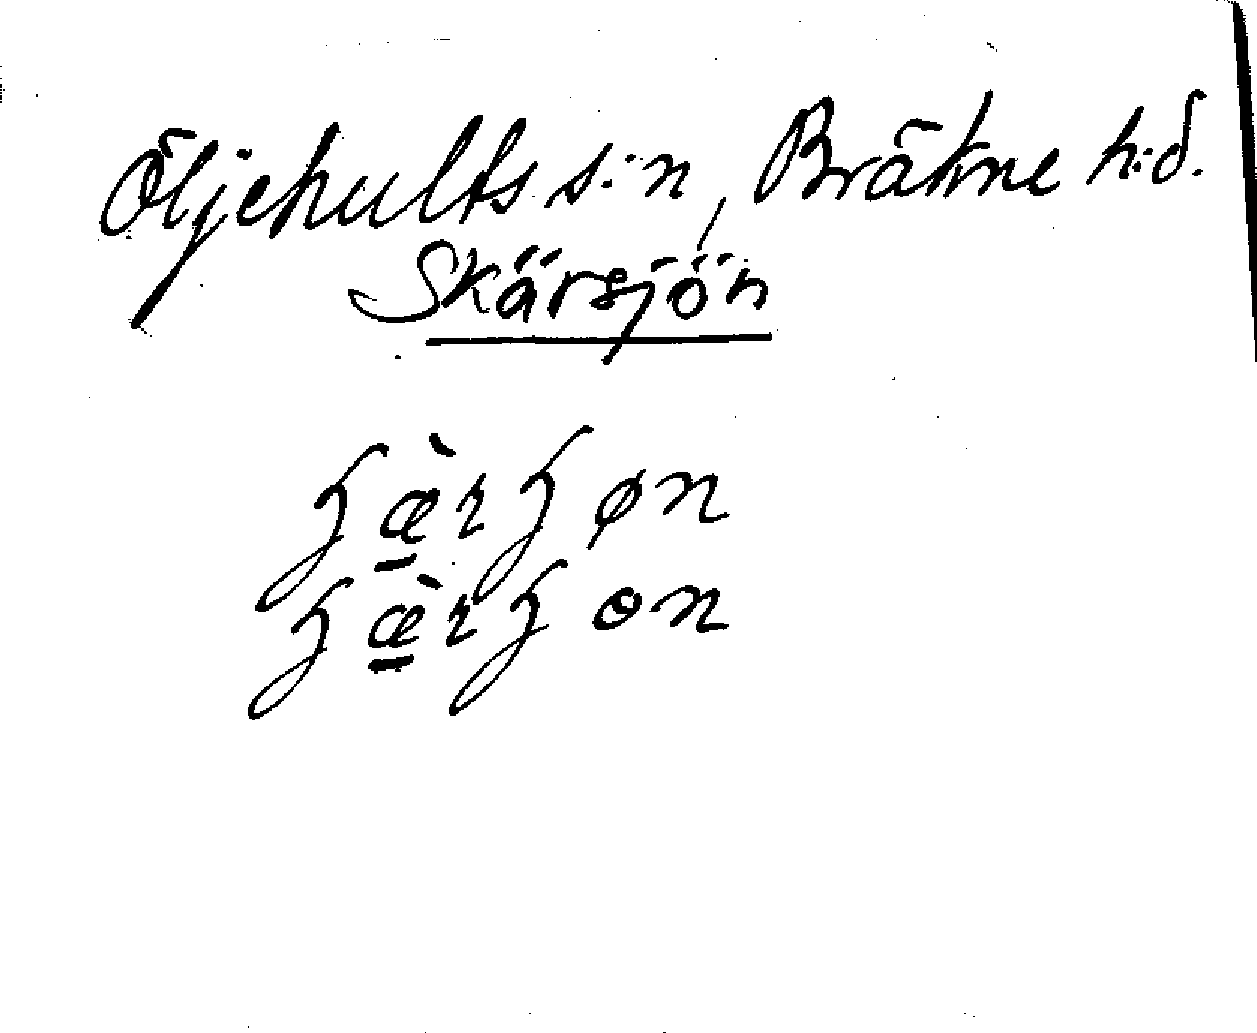 Öljehults s:n, Bräkne h:d.
Skärsjön
ɧæ̀rɧøn
ɧæ̀rɧɵn